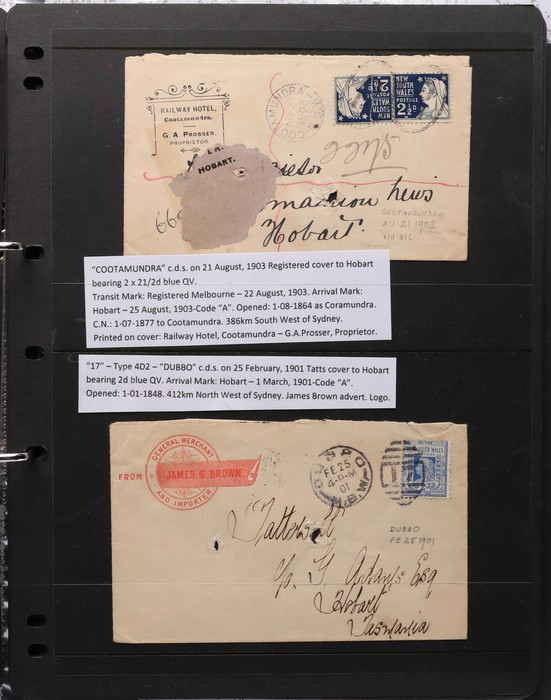 RAILWAY HOTEL,
Cootamundra.
G. A. PROSSER,
PROPRIETOR.
AMUNDRA N.S.
NEW
SOUTH
WALES
POSTAGE
2½D
HOBART.
news
Hobart.
COOTAMUNDRA
AU 21 1903
VIA VIC
"COOTAMUNDRA" c.d.s. on 21 August, 1903 Registered cover to Hobart
bearing 2 x 21/2d blue QV.
Transit Mark: Registered Melbourne – 22 August, 1903. Arrival Mark:
Hobart – 25 August, 1903-Code "A". Opened: 1-08-1864 as Coramundra.
C.N.: 1-07-1877 to Cootamundra. 386km South West of Sydney.
Printed on cover: Railway Hotel, Cootamundra – G.A.Prosser, Proprietor.
"17" – Type 4D2 – "DUBBO" c.d.s. on 25 February, 1901 Tatts cover to Hobart
bearing 2d blue QV. Arrival Mark: Hobart – 1 March, 1901-Code "A".
Opened: 1-01-1848. 412km North West of Sydney. James Brown advert. Logo.
GENERAL MERCHANT
FROM JAMES G. BROWN
AND IMPORTER
DUBBO
FE 25
4-P-M
01
N.S.W
"Tattersall"
c/o G. Adams Esq
Hobart
Tasmania
DUBBO
FE 25 1901